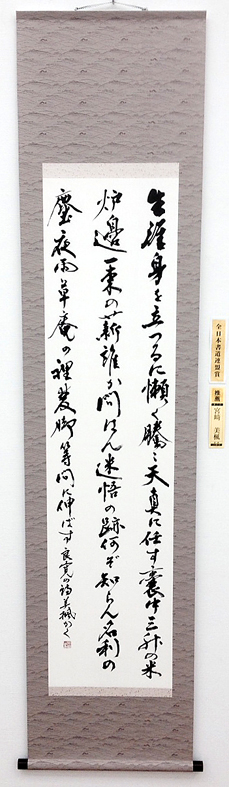 生涯身を立つるに懶く騰々天真に任す嚢中三升の米
炉邊一束の薪誰か問はん迷悟の跡何ぞ知らん名利の
塵夜雨草庵の裡双脚等間に伸ばす 良寛の詩 美楓かく
全日本書道連盟賞
推薦
宮崎 美楓